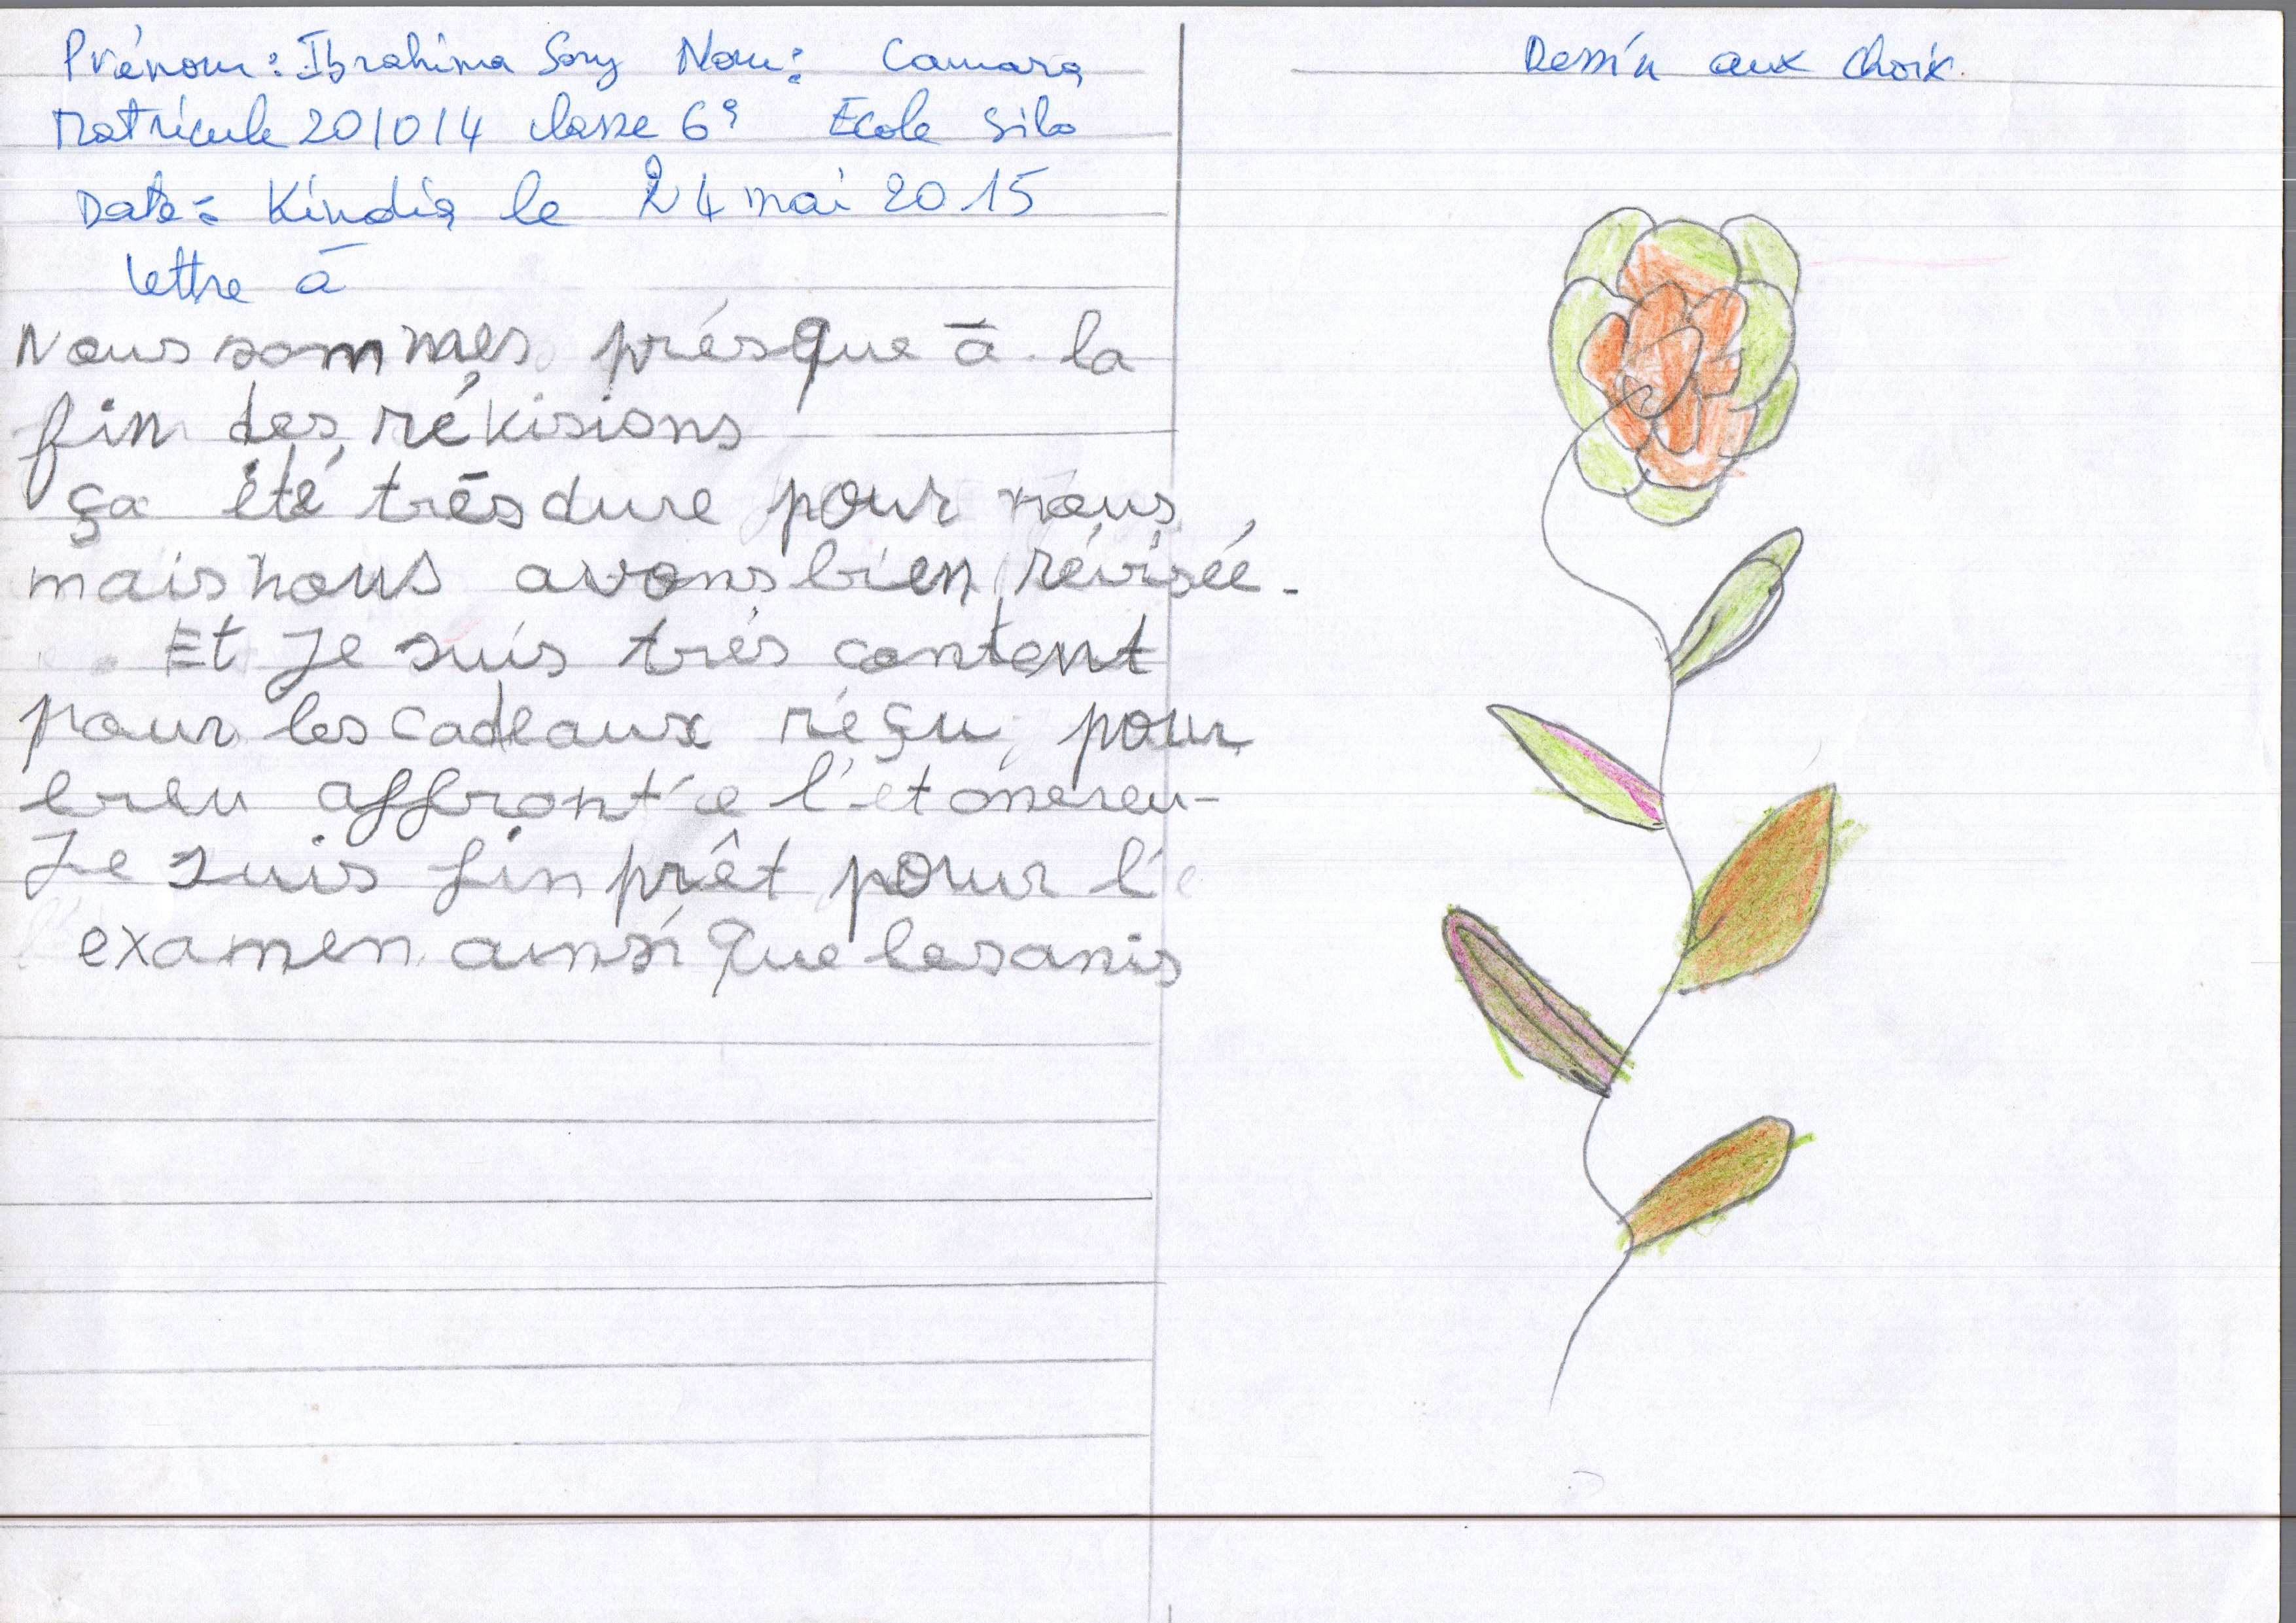 Prénom: Ibrahima Sory Nom: Camara
Matricule 201014 classe 6e Ecole Silo
Date: Kindia le 24 mai 2015
lettre à
Nous sommes présque à la
fin des rékisions
ça été trés dure pour nous
mais nous avons bien révisée.
Et Je suis trés content
pour les cadeaux réçu pour
bien affronté
Je suis fin prêt pour l'
examen ainsi que les amis
Dessin aux choix.